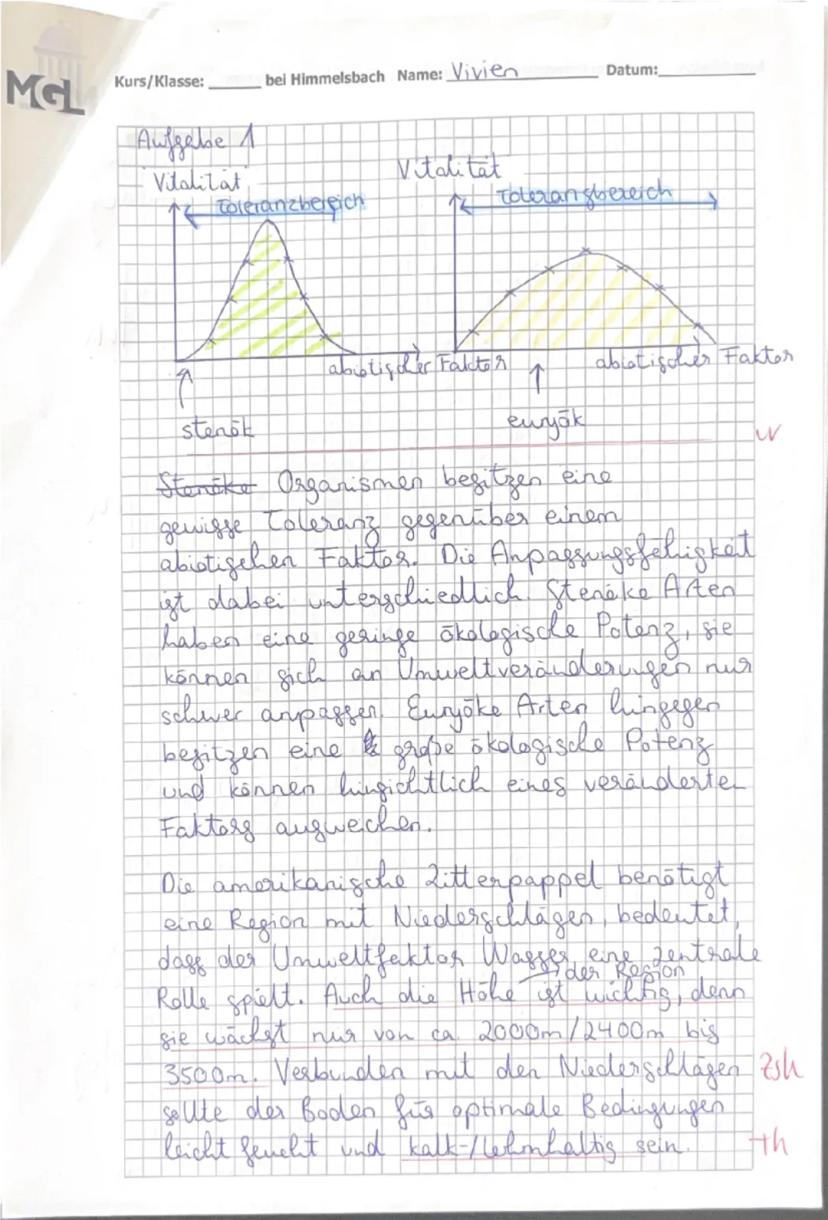 MGL
Kurs/Klasse: ______ bei Himmelsbach Name: Vivien Datum:______
Aufgabe 1
Vitalität
Vitalität
Toleranzbereich
Toleranzbereich
abiotischer Faktor
abiotischer Faktor
stenök
euryök
Stenöke Organismen besitzen eine
gewisse Toleranz gegenüber einem
abiotischen Faktor. Die Anpassungsfähigkeit
ist dabei unterschiedlich. Stenöke Arten
haben eine geringe ökologische Potenz, sie
können sich an Umweltveränderungen nur
schwer anpassen. Euryöke Arten hingegen
besitzen eine große ökologische Potenz
und können hinsichtlich eines veränderten
Faktors ausweichen.
Die amerikanische Zitterpappel benötigt
eine Region mit Niederschlägen, bedeutet,
dass der Umweltfaktor Wasser eine zentrale
der Region
Rolle spielt. Auch die Höhe ist wichtig, denn
sie wächst nur von ca. 2000m/2400m bis
3500m. Verbunden mit den Niederschlägen Zsh
sollte der Boden für optimale Bedingungen
leicht feucht und kalk-/lehmhaltig sein. th